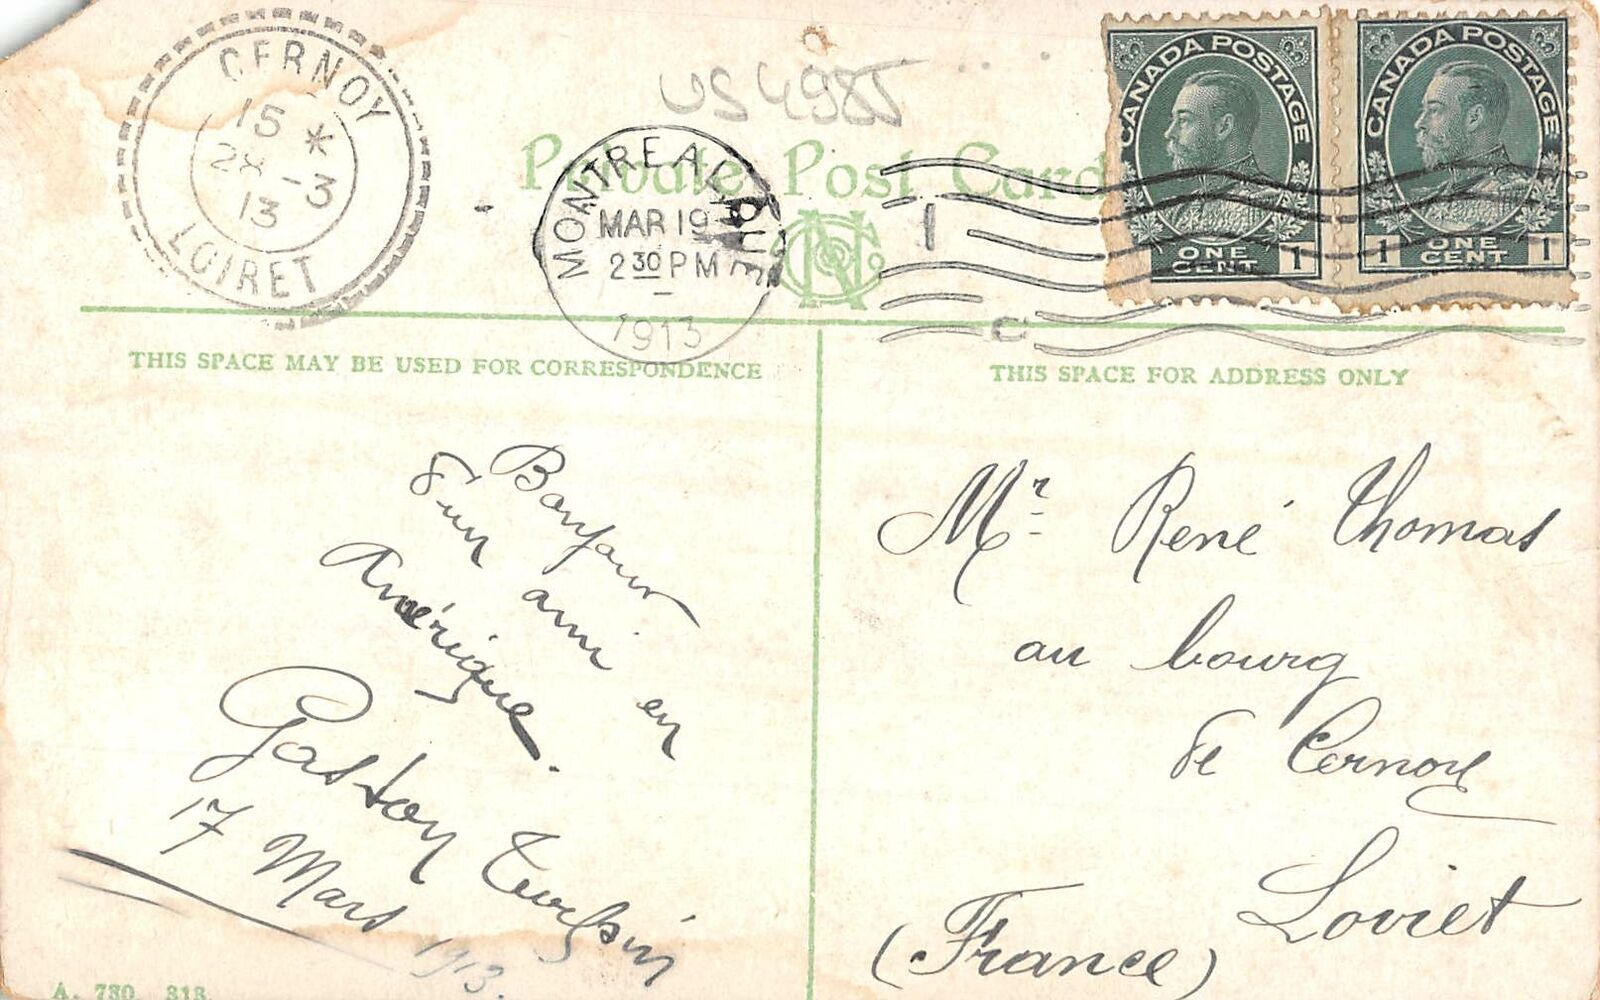 CERNOY
15 *
28 -3
13
LOIRET
US 4985
Private Post Card
MONTREAL QUE
MAR 19
2 30 PM
1913
1
C
CANADA POSTAGE
1 ONE CENT 1
CANADA POSTAGE
1 ONE CENT 1
THIS SPACE MAY BE USED FOR CORRESPONDENCE
THIS SPACE FOR ADDRESS ONLY
Bonjour
d'un ami en
Amérique.
Gaston
17 Mars 1913.
Mr René Thomas
au bourg
de Cernoy
Loiret
(France)
A. 730 313